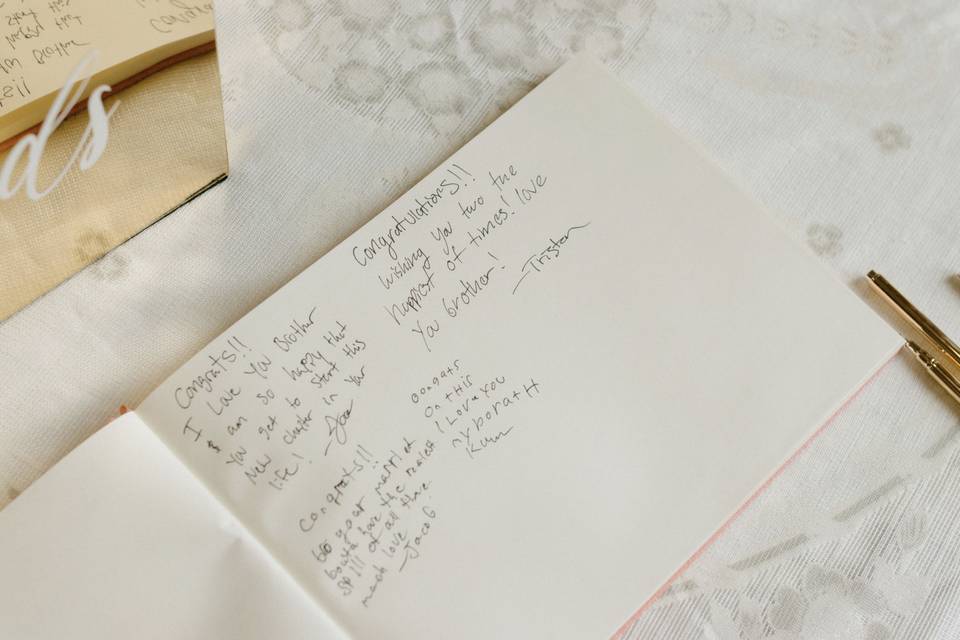 Congratulations!!
wishing you two the
happiest of times! love
you brother!
—Tristan
Congrats!!
I love you Brother
I am so happy that
you get to start this
New chapter in your
life! —Jace
congats
on this
I Love you
my borath
Congrats!!
bro your married
bouta have the realest
of all time.
much love
—Jacob
ds